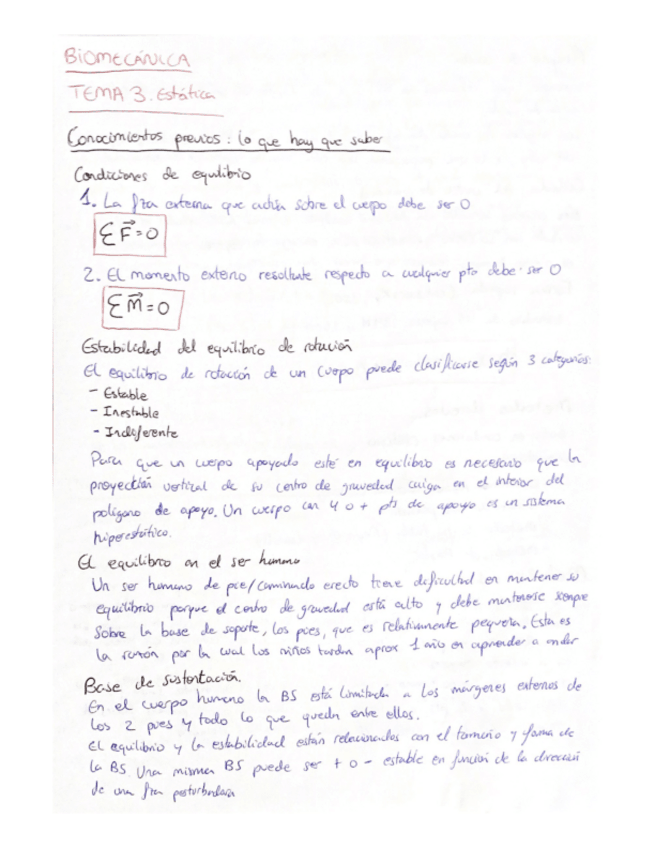 BIOMECÁNICA
TEMA 3. Estática
Conocimientos previos: lo que hay que saber
Condiciones de equilibrio
1. La fza externa que actúa sobre el cuerpo debe ser 0
ΣF⃗=0
2. El momento externo resultante respecto a cualquier pto debe ser 0
ΣM⃗=0
Estabilidad del equilibrio de rotación
El equilibrio de rotación de un cuerpo puede clasificarse según 3 categorías:
- Estable
- Inestable
- Indiferente
Para que un cuerpo apoyado esté en equilibrio es necesario que la
proyección vertical de su centro de gravedad caiga en el interior del
polígono de apoyo. Un cuerpo con 4 o + pts de apoyo es un sistema
hiperestático.
El equilibrio en el ser humano
Un ser humano de pie/caminando erecto tiene dificultad en mantener su
equilibrio porque el centro de gravedad está alto y debe mantenerse siempre
sobre la base de soporte, los pies, que es relativamente pequeña. Esta es
la razón por la cual los niños tardan aprox 1 año en aprender a andar
Base de sustentación.
En el cuerpo humano la BS está limitada a los márgenes externos de
los 2 pies y todo lo que queda entre ellos.
El equilibrio y la estabilidad están relacionados con el tamaño y forma de
la BS. Una misma BS puede ser + o - estable en función de la dirección
de una fza perturbadora